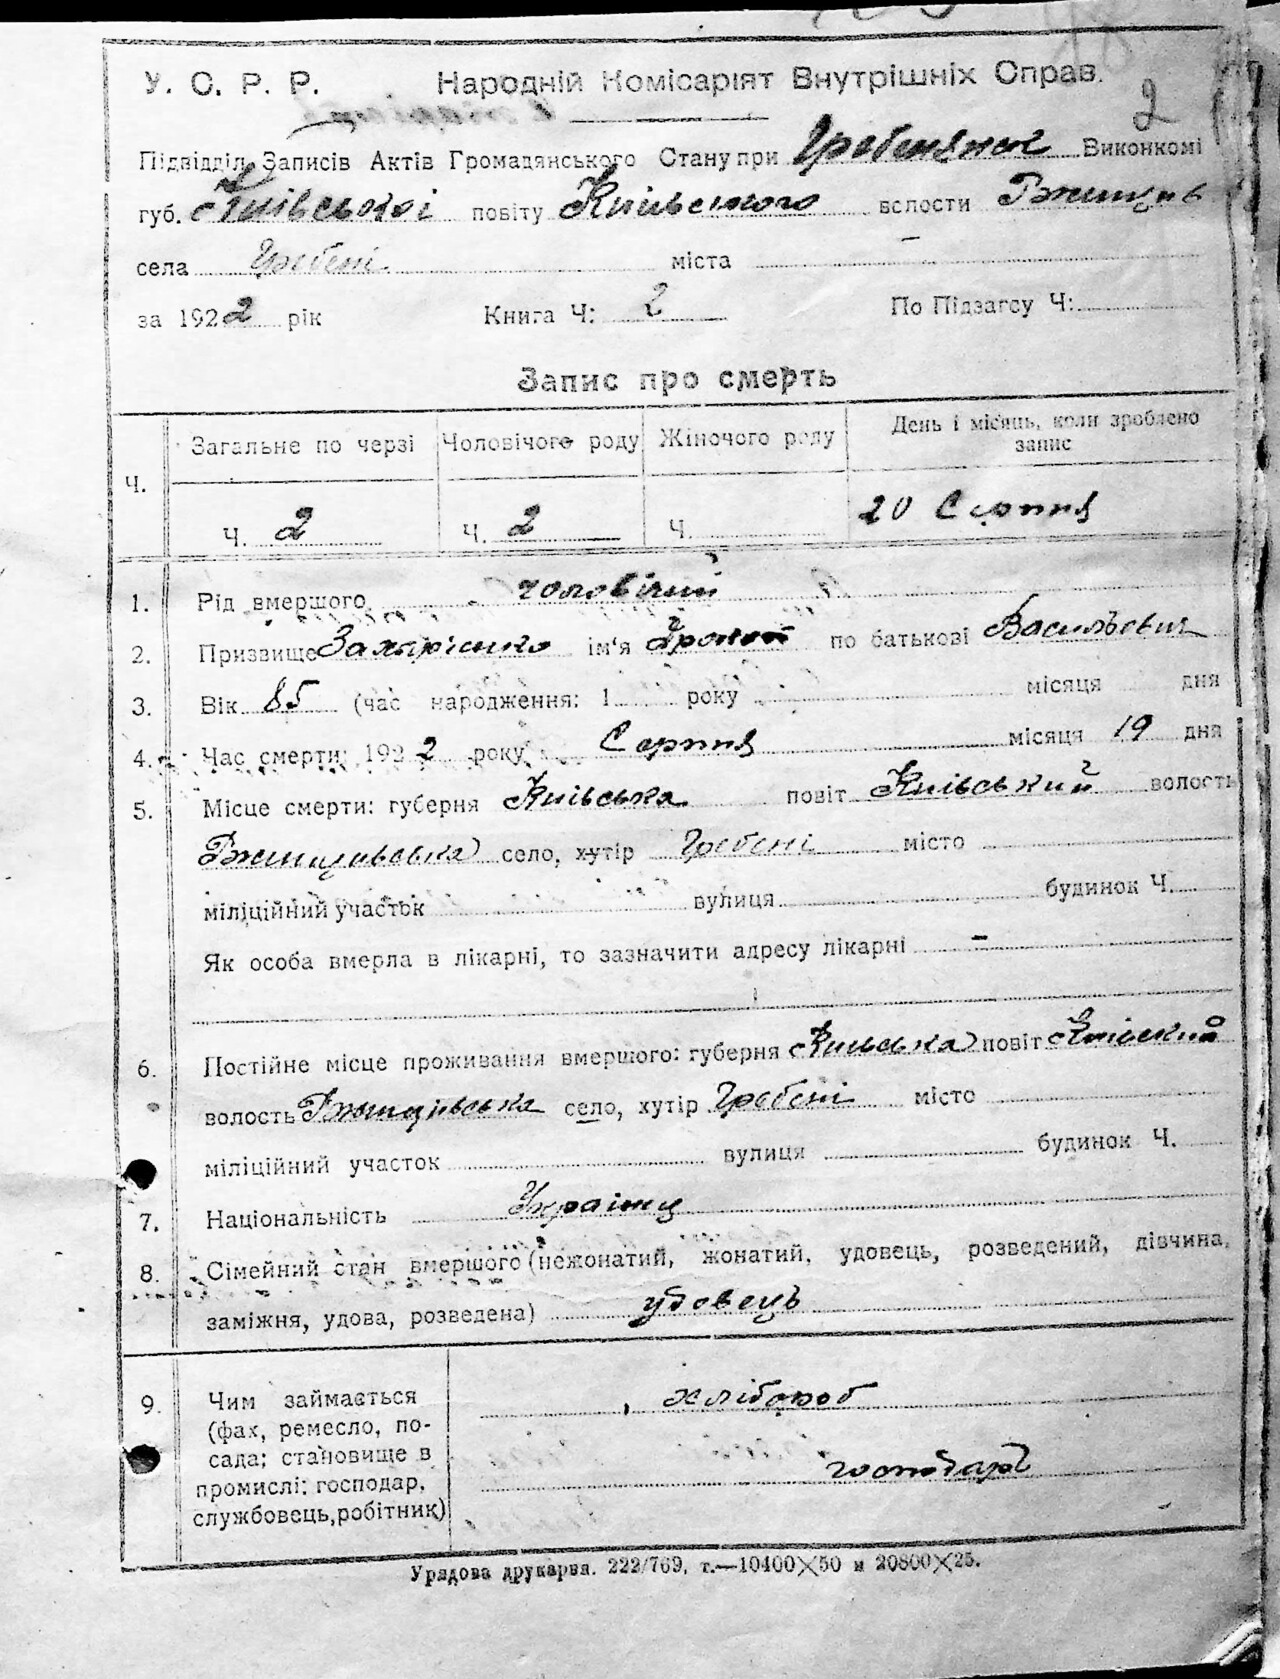 У. С. Р. Р. Народній Комісаріят Внутрішніх Справ.
2
Підвідділ Записів Актів Громадянського Стану при Гребенянск Виконкомі
губ. Київської повіту Київського волости Ржищів
села Гребені міста –
за 1922 рік Книга Ч: 2 По Підзагсу Ч:
Запис про смерть
Ч. Загальне по черзі Чоловічого роду Жіночого роду День і місяць, коли зроблено
запис
Ч. 2 Ч. 2 Ч. 20 Серпня
1. Рід вмершого чоловічий
2. Призвище Захарієнко ім'я по батькові Васильевич
3. Вік 85 (час народження: 1 року місяця дня
4. Час смерти: 1922 року Серпня місяця 19 дня
5. Місце смерти: губерня Київська повіт Київський волость
Ржищівська село, хутір Гребені місто
міліційний участок вулиця будинок Ч.
Як особа вмерла в лікарні, то зазначити адресу лікарні –
6. Постійне місце проживання вмершого: губерня Київська повіт Київский
волость Ржищівська село, хутір Гребені місто
міліційний участок вулиця будинок Ч.
7. Національність Українц
8. Сімейний стан вмершого (нежонатий, жонатий, удовець, розведений, дівчина,
заміжня, удова, розведена) удовець
9. Чим займається хлібороб
(фах, ремесло, по-
сада; становище в господарь
промислі; господар,
службовець, робітник)
Урядова друкарня. 222/769, т.—10400×50 и 20800×25.